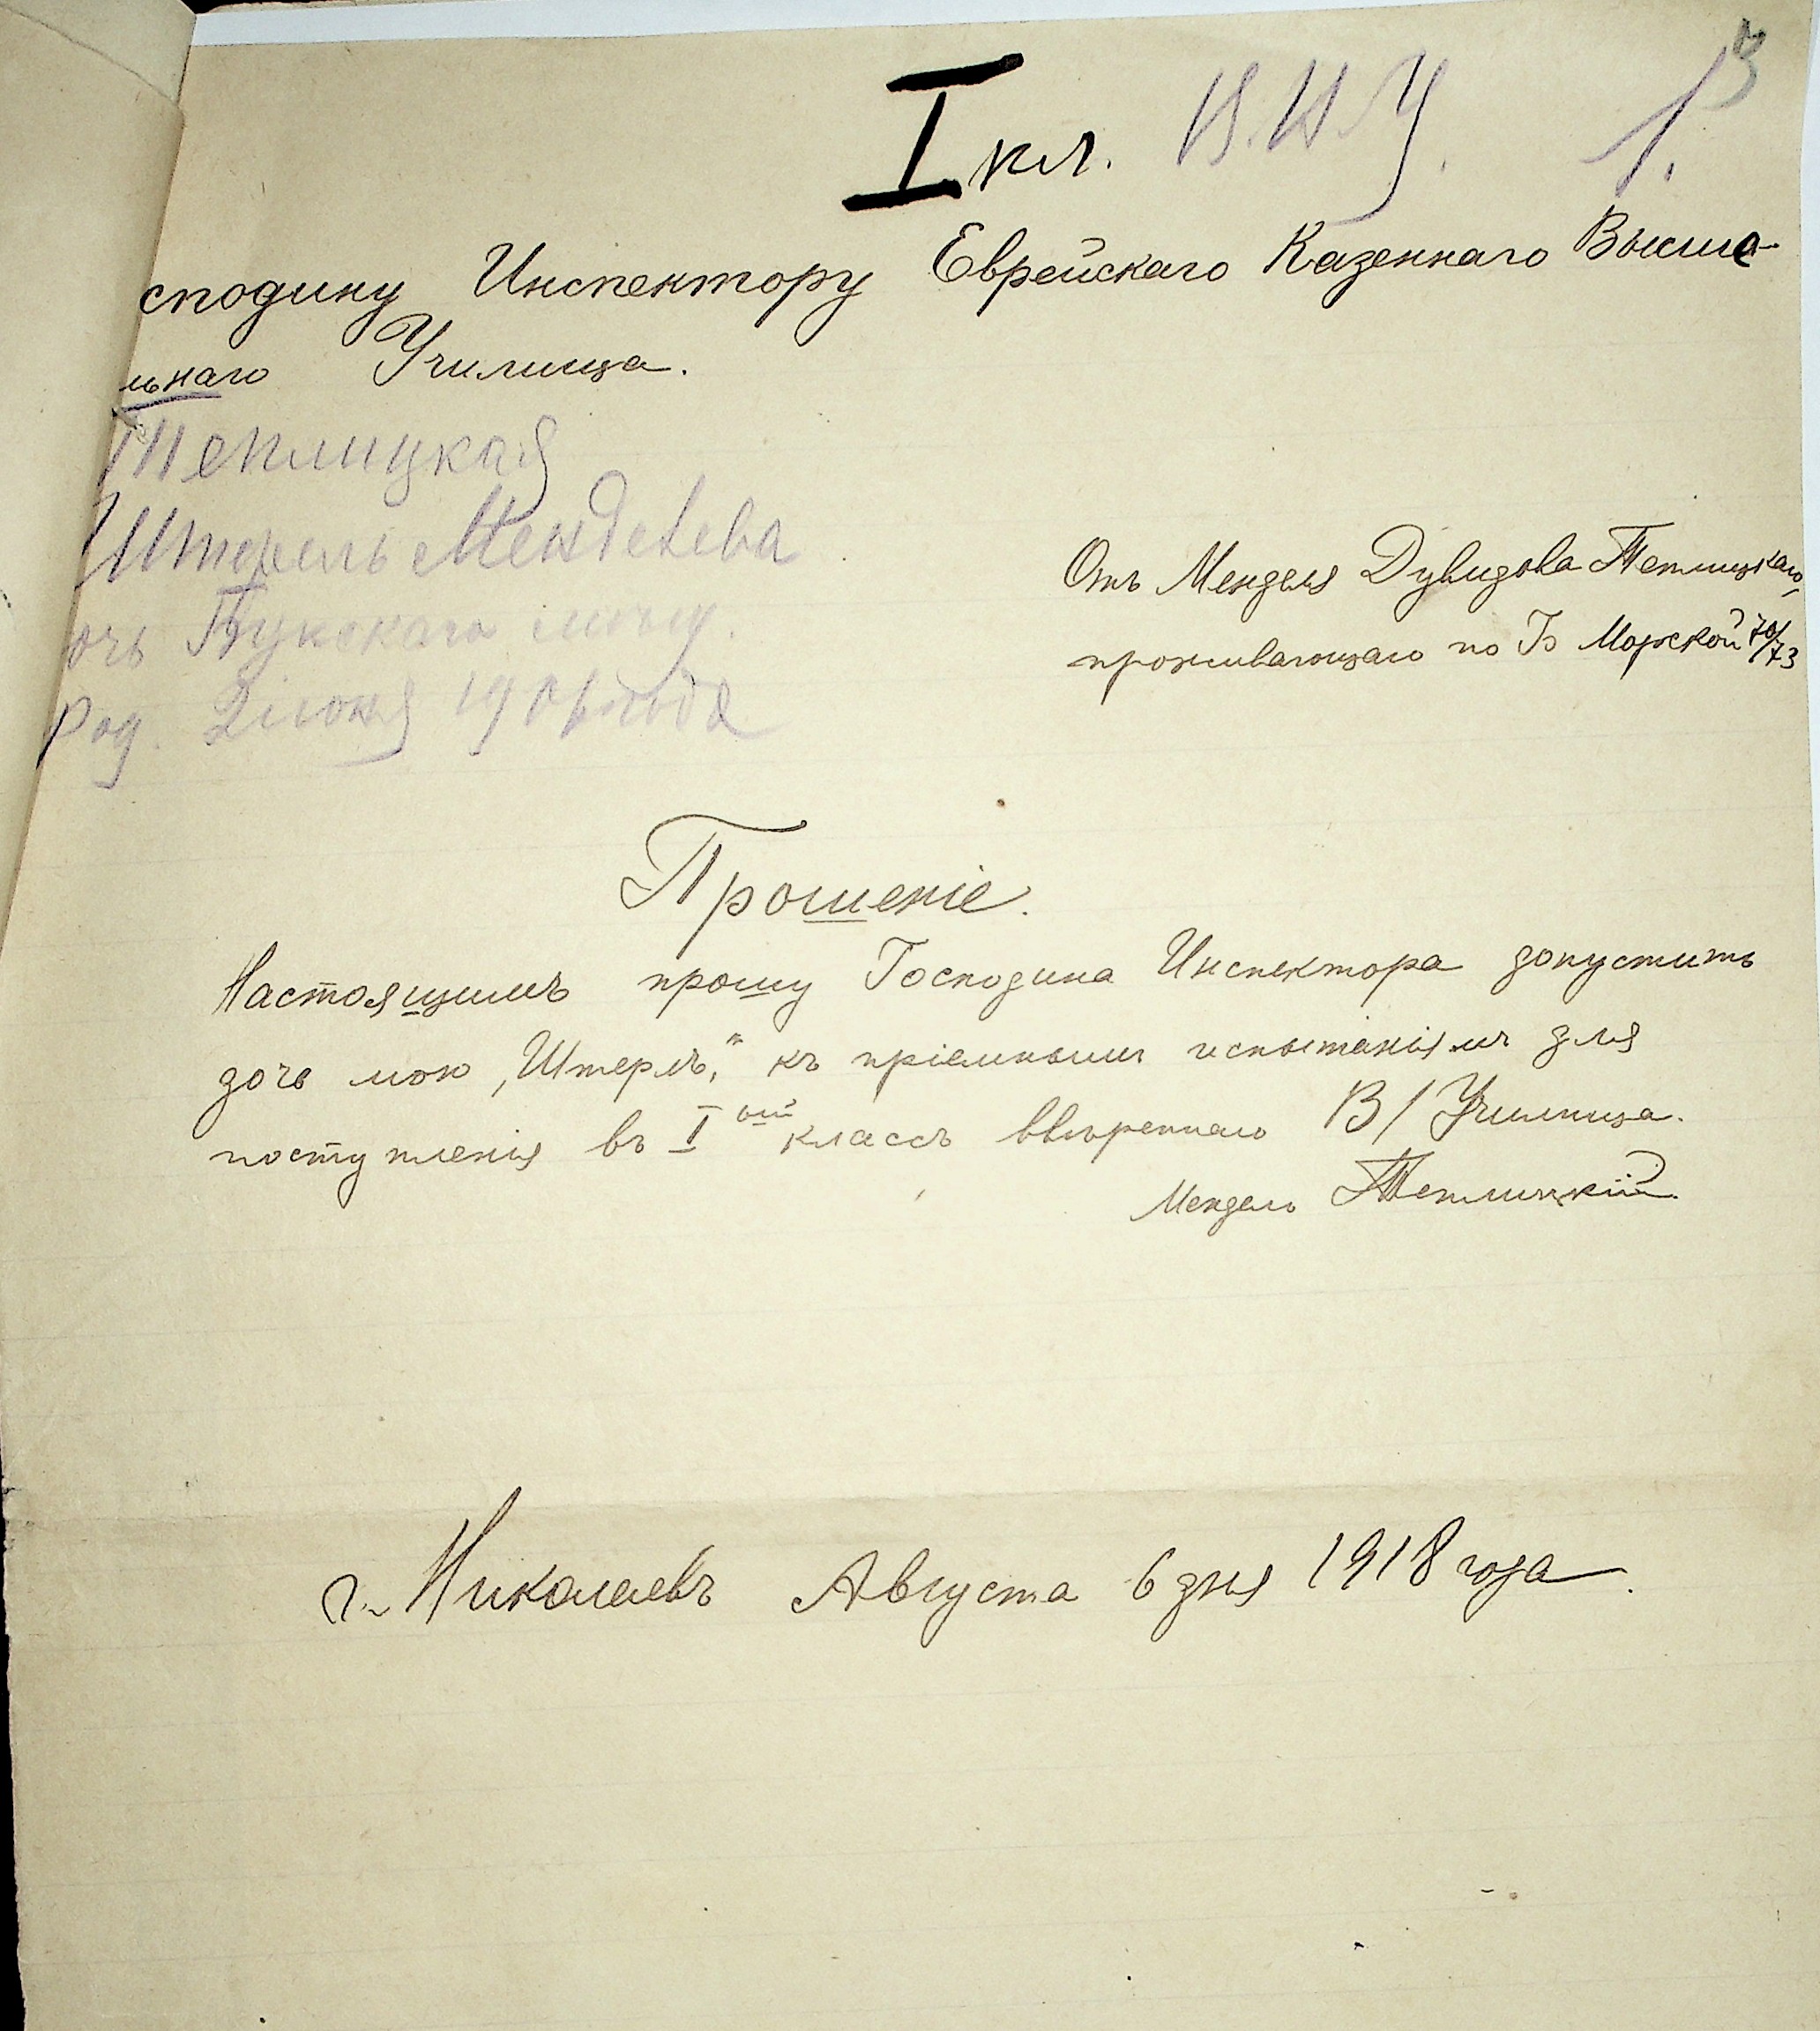 I кл. В.Н.У. 1.
сподину Инспектору Еврейскаго Казеннаго Высше-
льнаго Училища.
Теплицкая
Штерель Менделева
От Менделя Дувидова Теплицкаго,
проживающаго по Б Морской 70/73
очь
Род. 2 іюня 1906 года
Прошеніе.
Настоящимъ прошу Господина Инспектора допустить
дочь мою „Штерль“, къ пріемнымъ испытаніямъ для
поступленія въ I ый классъ ввѣреннаго В/Училища.
Мендель Теплицкій.
г. Николаевъ Августа 6 дня 1918 года.